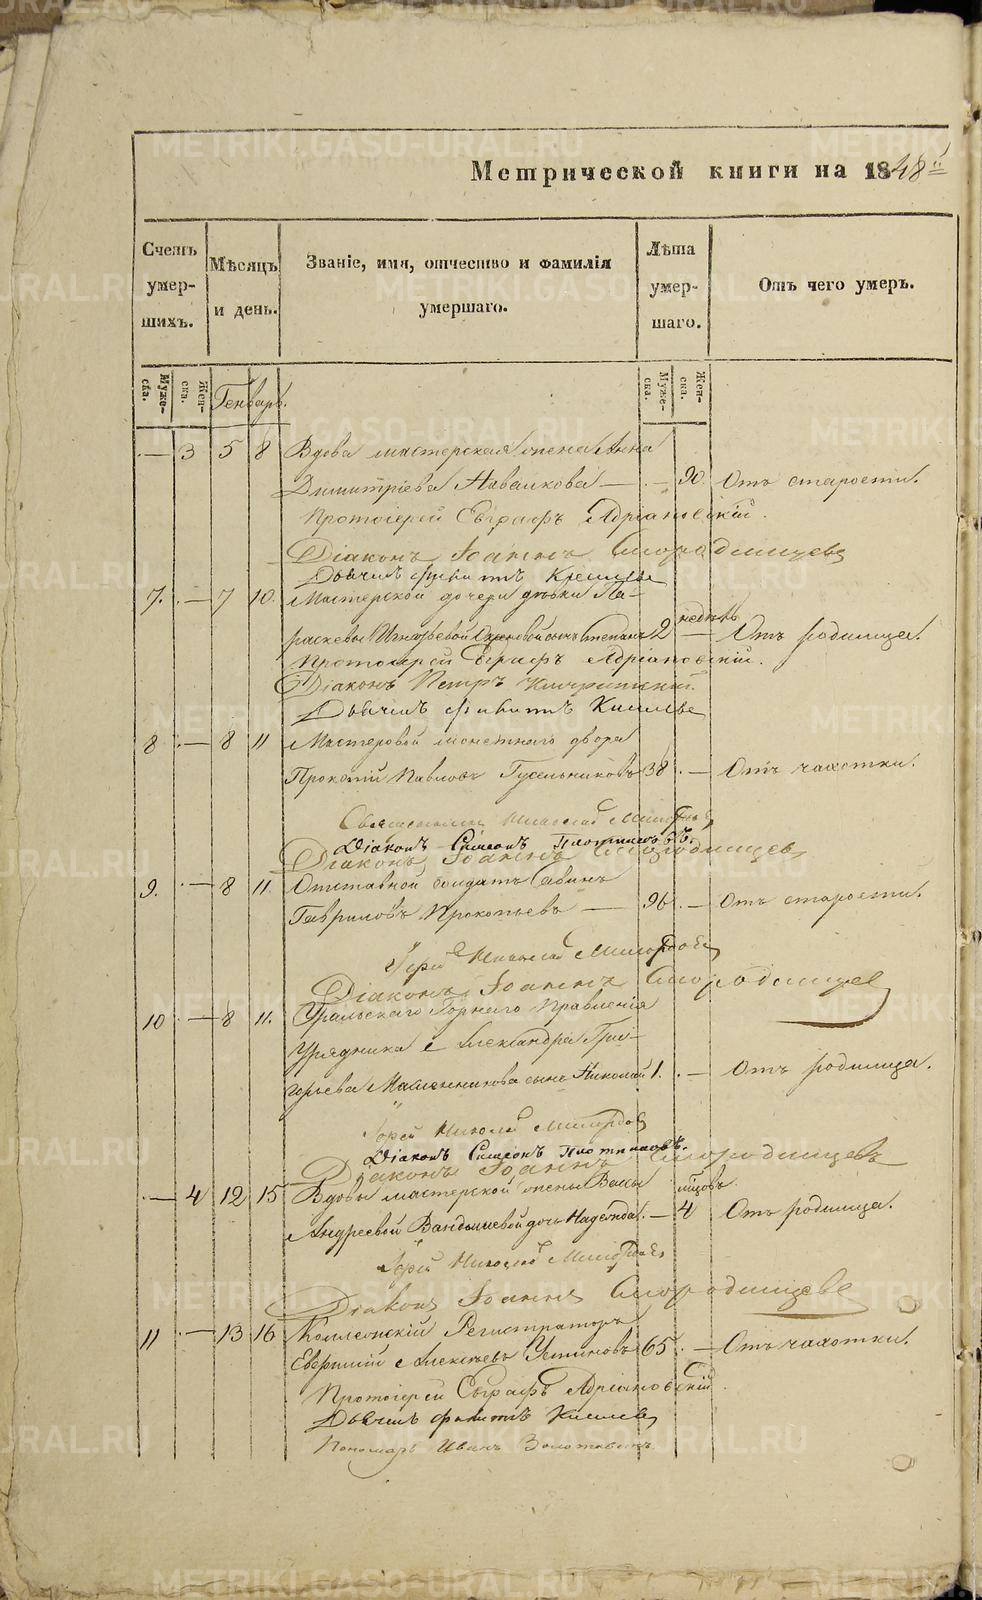 Метрической книги на 1848й
Счетъ умер- шихъ.
Мѣсяцъ и день.
Званіе, имя, отчество и фамилія умершаго.
Лѣта умер- шаго.
Отъ чего умеръ.
Муже- ска.
Жен- ска.
Генварь.
Муже- ска.
Жен- ска.
— 3 5 8 Вдова мастерская жена Анна
Димитріева — — 90. Отъ старости.
Протоіерей Евграфъ Адріановскій.
Діаконъ Іоаннъ Смородинцевъ
Дьячекъ Киселевъ
7. — 7 10. Мастерской дочери дѣвки Па-
раскевы Игнатьевой сынъ Степанъ 2 недѣль — Отъ родимца.
Протоіерей Евграфъ Адріановскій.
Діаконъ Петръ
Дьячекъ Киселевъ
8 — 8 11 Мастеровой монетнаго двора
Павловъ Гусельниковъ 38 — Отъ чахотки.
Священникъ Николай
Діаконъ Симеонъ Плотниковъ.
Діаконъ Іоаннъ Смородинцевъ
9. — 8 11. Отставной солдатъ Савинъ
Гавриловъ Прокопьевъ — 96 — Отъ старости.
Іерей Николай
Діаконъ Іоаннъ Смородинцевъ
10 — 8 11. Уральскаго Горнаго Правленія
Урядника Александра Гри-
горьева сынъ Николай 1. — Отъ родимца.
Іерей Николай
Діаконъ Симеонъ Плотниковъ.
Діаконъ Іоаннъ Смородинцевъ
— 4 12 15 Вдовы мастерской жены Вассы
Андреевой Вандышевой дочь Надежда. — 4 мѣсяцовъ. Отъ родимца.
Іерей Николай
Діаконъ Іоаннъ Смородинцевъ
11 — 13 16 Коллежскій Регистраторъ
Алексѣевъ Устиновъ 65. — Отъ чахотки.
Протоіерей Евграфъ Адріановскій.
Дьячекъ Киселевъ
Пономарь Иванъ
METRIKI.GASO-URAL.RU